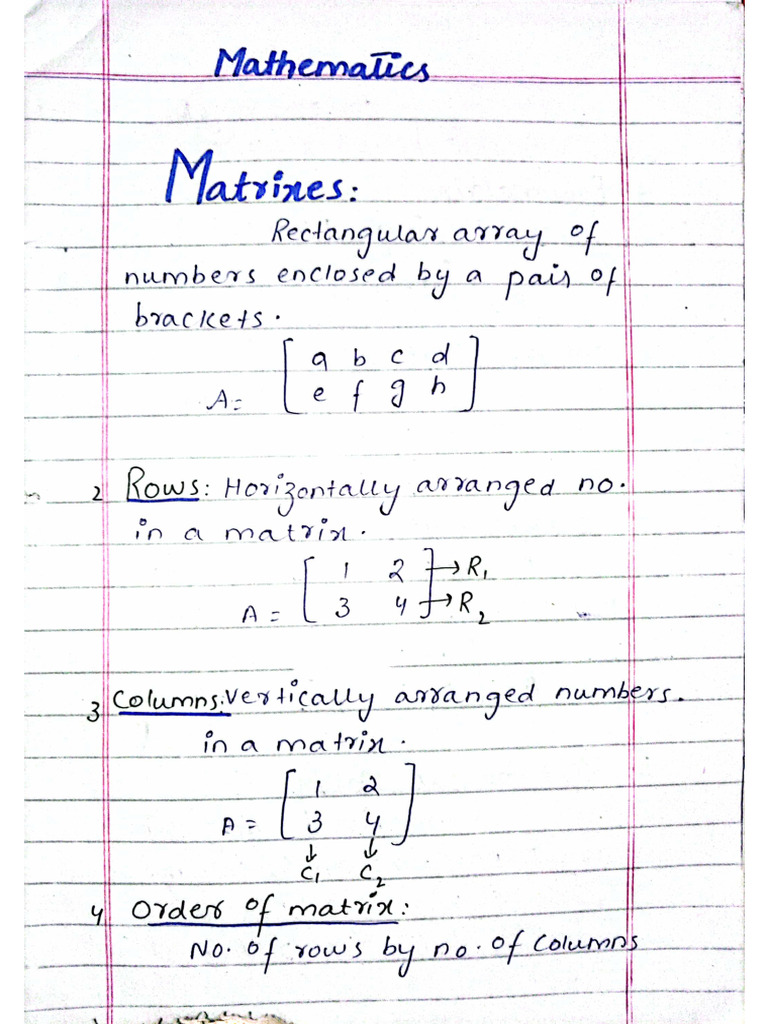 Mathematics
Matrixes:
Rectangular array of
numbers enclosed by a pair of
brackets.
a b c d
A= e f g h
2 Rows: Horizontally arranged no.
in a matrix.
1 2 → R1
A = 3 4 → R2
3 Columns: Vertically arranged numbers.
in a matrix.
1 2
A = 3 4
↓ ↓
C1 C2
4 Order of matrix:
No. of rows by no. of columns